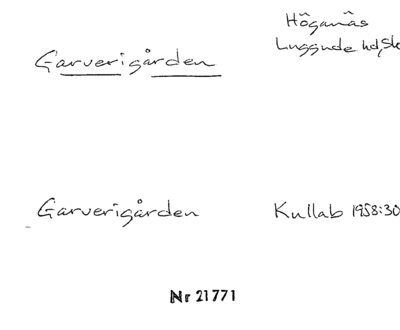 Höganäs
Garverigården
Luggude hd, Sk
Garverigården
Kullab 1958:30
Nr 21771